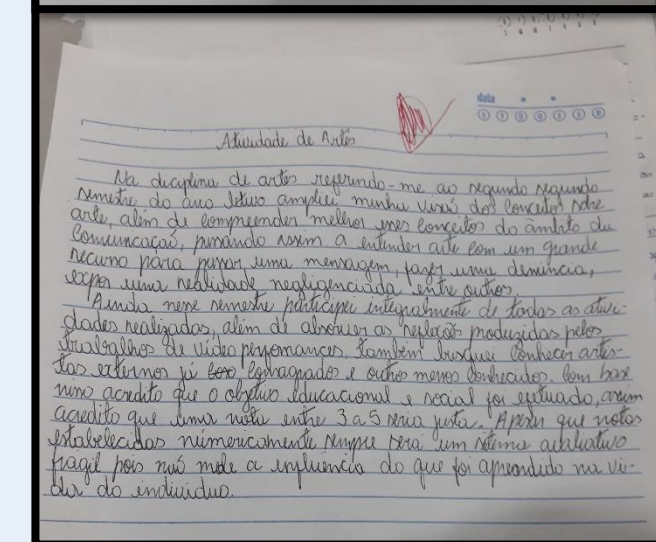 data
Atividade de Artes
Na disciplina de artes referindo-me ao segundo segundo
semestre do ano letivo ampliei minha visão dos conceitos sobre
arte, além de compreender melhor esses conceitos do âmbito da
Comunicação, passando assim a entender arte com um grande
recurso para passar uma mensagem, fazer uma denúncia,
expor uma realidade negligenciada entre outros.
Ainda nesse semestre participei integralmente de todas as ativi-
dades realizadas, além de absorver as reflexões produzidas pelos
trabalhos de vídeo perfomances. também busquei conhecer artis-
tas externos já consagrados e outros menos conhecidos. Com base
nisso acredito que o objetivo educacional e social foi efetuado, assim
acredito que uma nota entre 3 a 5 seria justa. Apesar que notas
estabelecidas númericamente sempre será um sistema avaliativo
frágil pois não mede a influência do que foi aprendido na vi-
da do indivíduo.